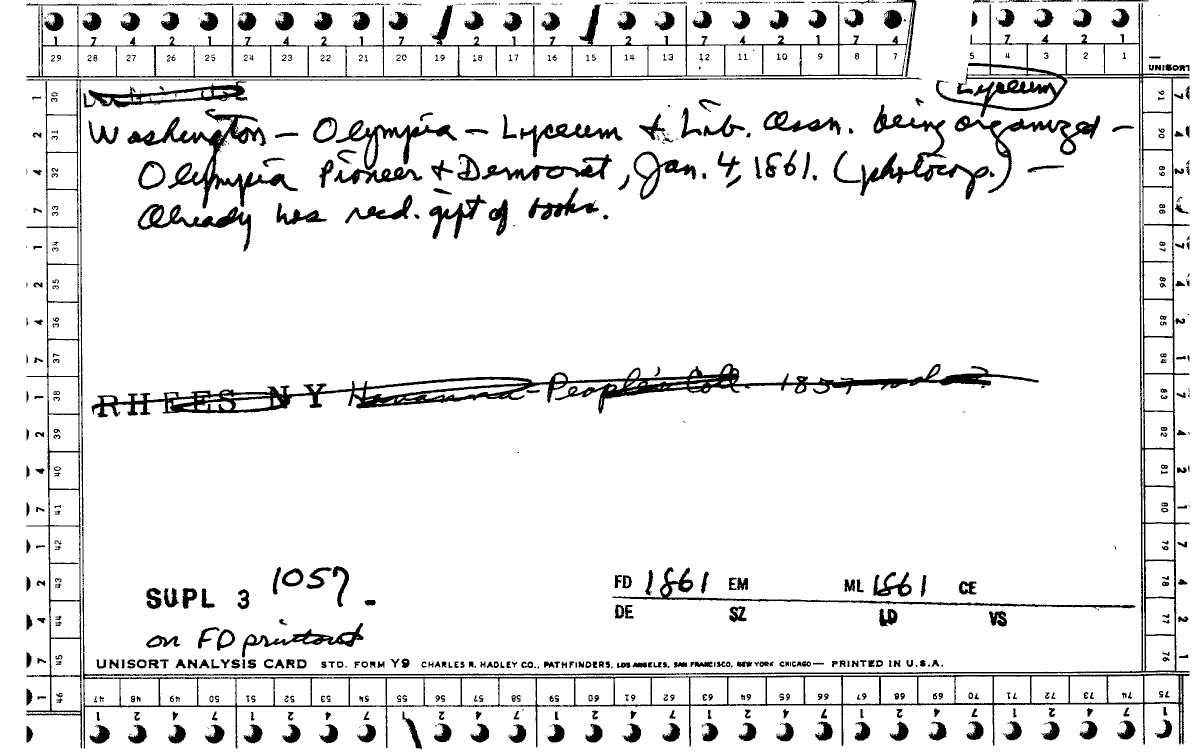 1 7 4 2 1 7 4 2 1 7 4 2 1 7 4 2 1 7 4 2 1 7 4 7 4 2 1
29 28 27 26 25 24 23 22 21 20 19 18 17 16 15 14 13 12 11 10 9 8 7 5 4 3 2 1
UNISORT
Lyceum
Washington – Olympia – Lyceum & Lib. Assn. being organized –
Olympia Pioneer & Democrat, Jan. 4, 1861. (photocop.) –
Already has recd. gift of books.
RHEES NY Havanna - People's Coll. 1857
SUPL 3 1057 -
on FD printout
FD 1861 EM ML 1861 CE
DE SZ LD VS
UNISORT ANALYSIS CARD STD. FORM Y9 CHARLES R. HADLEY CO., PATHFINDERS, LOS ANGELES, SAN FRANCISCO, NEW YORK CHICAGO — PRINTED IN U.S.A.
1 2 4 7 1 2 4 7 1 2 4 7 1 2 4 7 1
30 31 32 33 34 35 36 37 38 39 40 41 42 43 44 45 46
91 90 89 88 87 86 85 84 83 82 81 80 79 78 77 76
47 48 49 50 51 52 53 54 55 56 57 58 59 60 61 62 63 64 65 66 67 68 69 70 71 72 73 74 75